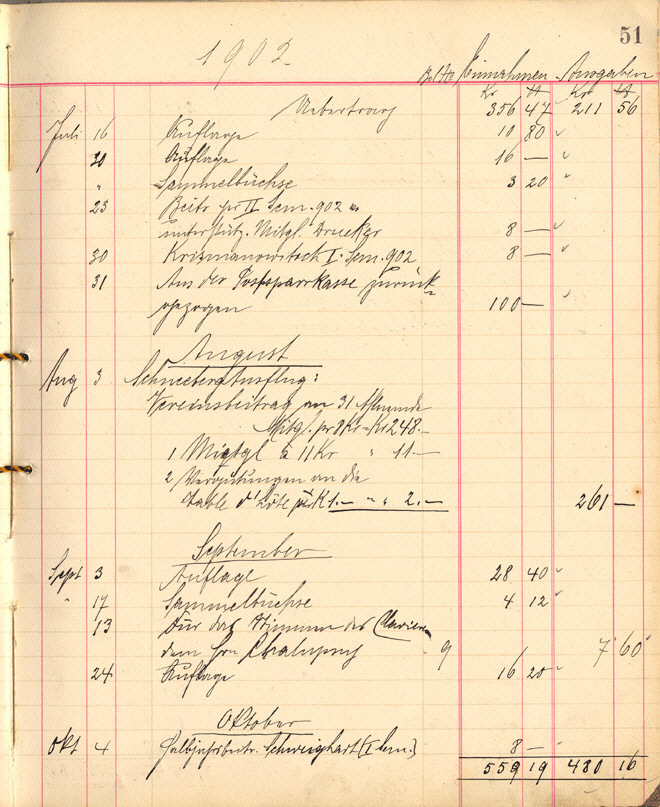 51
1902.
Einnahmen Ausgaben
Kr H Kr H
Uebertrag 356 47 211 56
Juli 16 Auflage 10 80
20 Auflage 16 —
" Sammelbüchse 3 20
23 Beitr pr II Sem. 902
unterstütz. Mitgl. Drucker 8 —
30 Krizmanowitsch I. Sem. 902 8 —
31 Aus der Postsparrkasse zurück-
gezogen 100 —
August
Aug 3 Schneeberg Ausflug:
Vereinsbeitrag an 31
Mitgl. pr 8 Kr = Kr 248.—
1 Mitgl à 11 Kr " 11.—
2 Vergütungen an die
Table d'hôte à K 1.— " " 2.— 261 —
September
Sept 3 Auflage 28 40
" 17 Sammelbüchse 4 12
13 Für das Stimmen des Clavieres
dem Hrn Chalupny 9 7 60
24 Auflage 16 20
Oktober
Okt 4 Halbjahrbeitr. Schweighart (I Sem.) 8 —
559 19 480 16